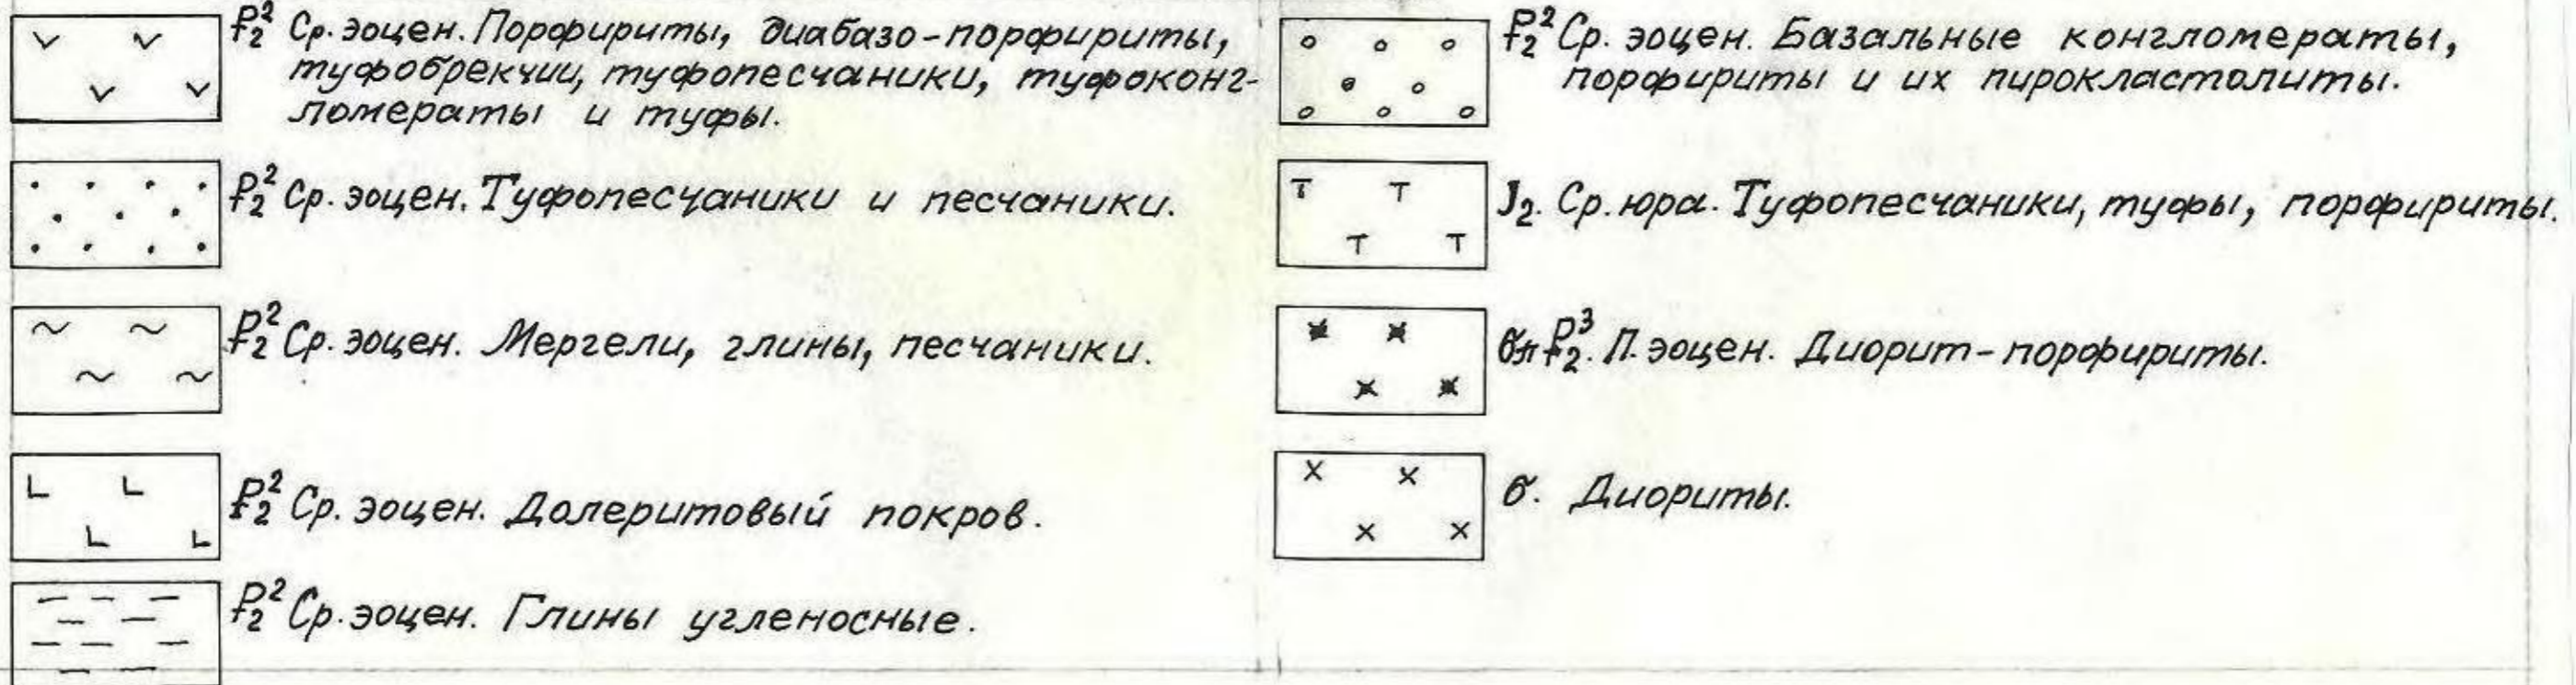 ₽₂² Ср. эоцен. Порфириты, диабазо-порфириты,
туфобрекчии, туфопесчаники, туфоконг-
ломераты и туфы.
₽₂² Ср. эоцен. Туфопесчаники и песчаники.
₽₂² Ср. эоцен. Мергели, глины, песчаники.
₽₂² Ср. эоцен. Долеритовый покров.
₽₂² Ср. эоцен. Глины угленосные.
₽₂² Ср. эоцен. Базальные конгломераты,
порфириты и их пирокластолиты.
J₂. Ср. юра. Туфопесчаники, туфы, порфириты.
бπ₽₂³. П. эоцен. Диорит-порфириты.
б. Диориты.